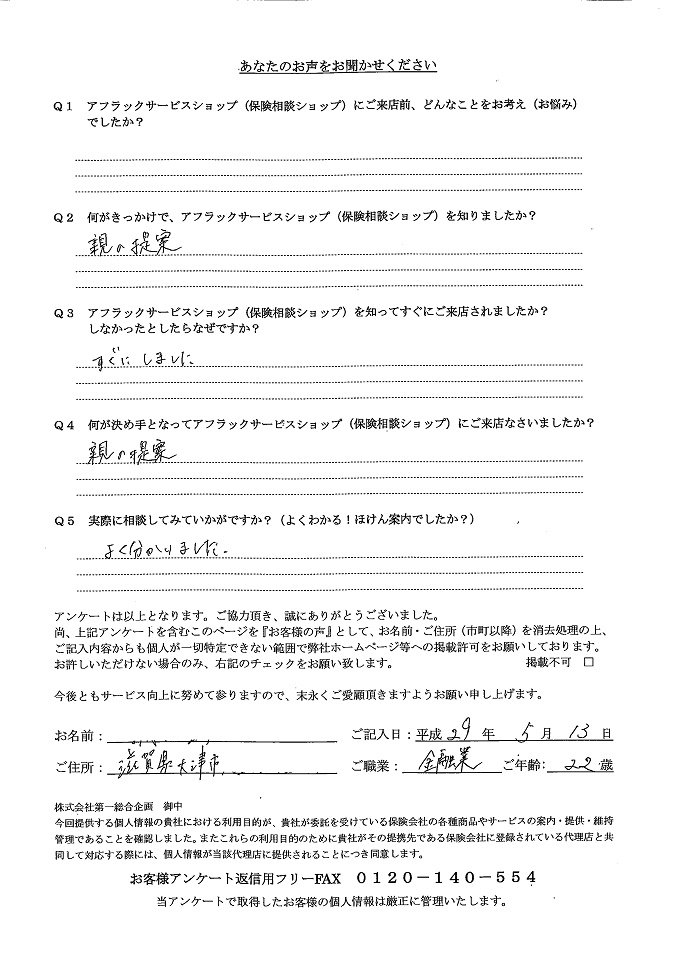 あなたのお声をお聞かせください
Q1 アフラックサービスショップ（保険相談ショップ）にご来店前、どんなことをお考え（お悩み）
でしたか？
Q2 何がきっかけで、アフラックサービスショップ（保険相談ショップ）を知りましたか？
親の提案
Q3 アフラックサービスショップ（保険相談ショップ）を知ってすぐにご来店されましたか？
しなかったとしたらなぜですか？
すぐにしました
Q4 何が決め手となってアフラックサービスショップ（保険相談ショップ）にご来店なさいましたか？
親の提案
Q5 実際に相談してみていかがですか？（よくわかる！ほけん案内でしたか？）
よく分かりました。
アンケートは以上となります。ご協力頂き、誠にありがとうございました。
尚、上記アンケートを含むこのページを『お客様の声』として、お名前・ご住所（市町以降）を消去処理の上、
ご記入内容からも個人が一切特定できない範囲で弊社ホームページ等への掲載許可をお願いしております。
お許しいただけない場合のみ、右記のチェックをお願い致します。 掲載不可 □
今後ともサービス向上に努めて参りますので、末永くご愛顧頂きますようお願い申し上げます。
お名前： ご記入日：平成 29 年 5 月 13 日
ご住所： 滋賀県大津市 ご職業： 金融業 ご年齢： 22 歳
株式会社第一総合企画 御中
今回提供する個人情報の貴社における利用目的が、貴社が委託を受けている保険会社の各種商品やサービスの案内・提供・維持
管理であることを確認しました。またこれらの利用目的のために貴社がその提携先である保険会社に登録されている代理店と共
同して対応する際には、個人情報が当該代理店に提供されることにつき同意します。
お客様アンケート返信用フリーFAX 0120－140－554
当アンケートで取得したお客様の個人情報は厳正に管理いたします。